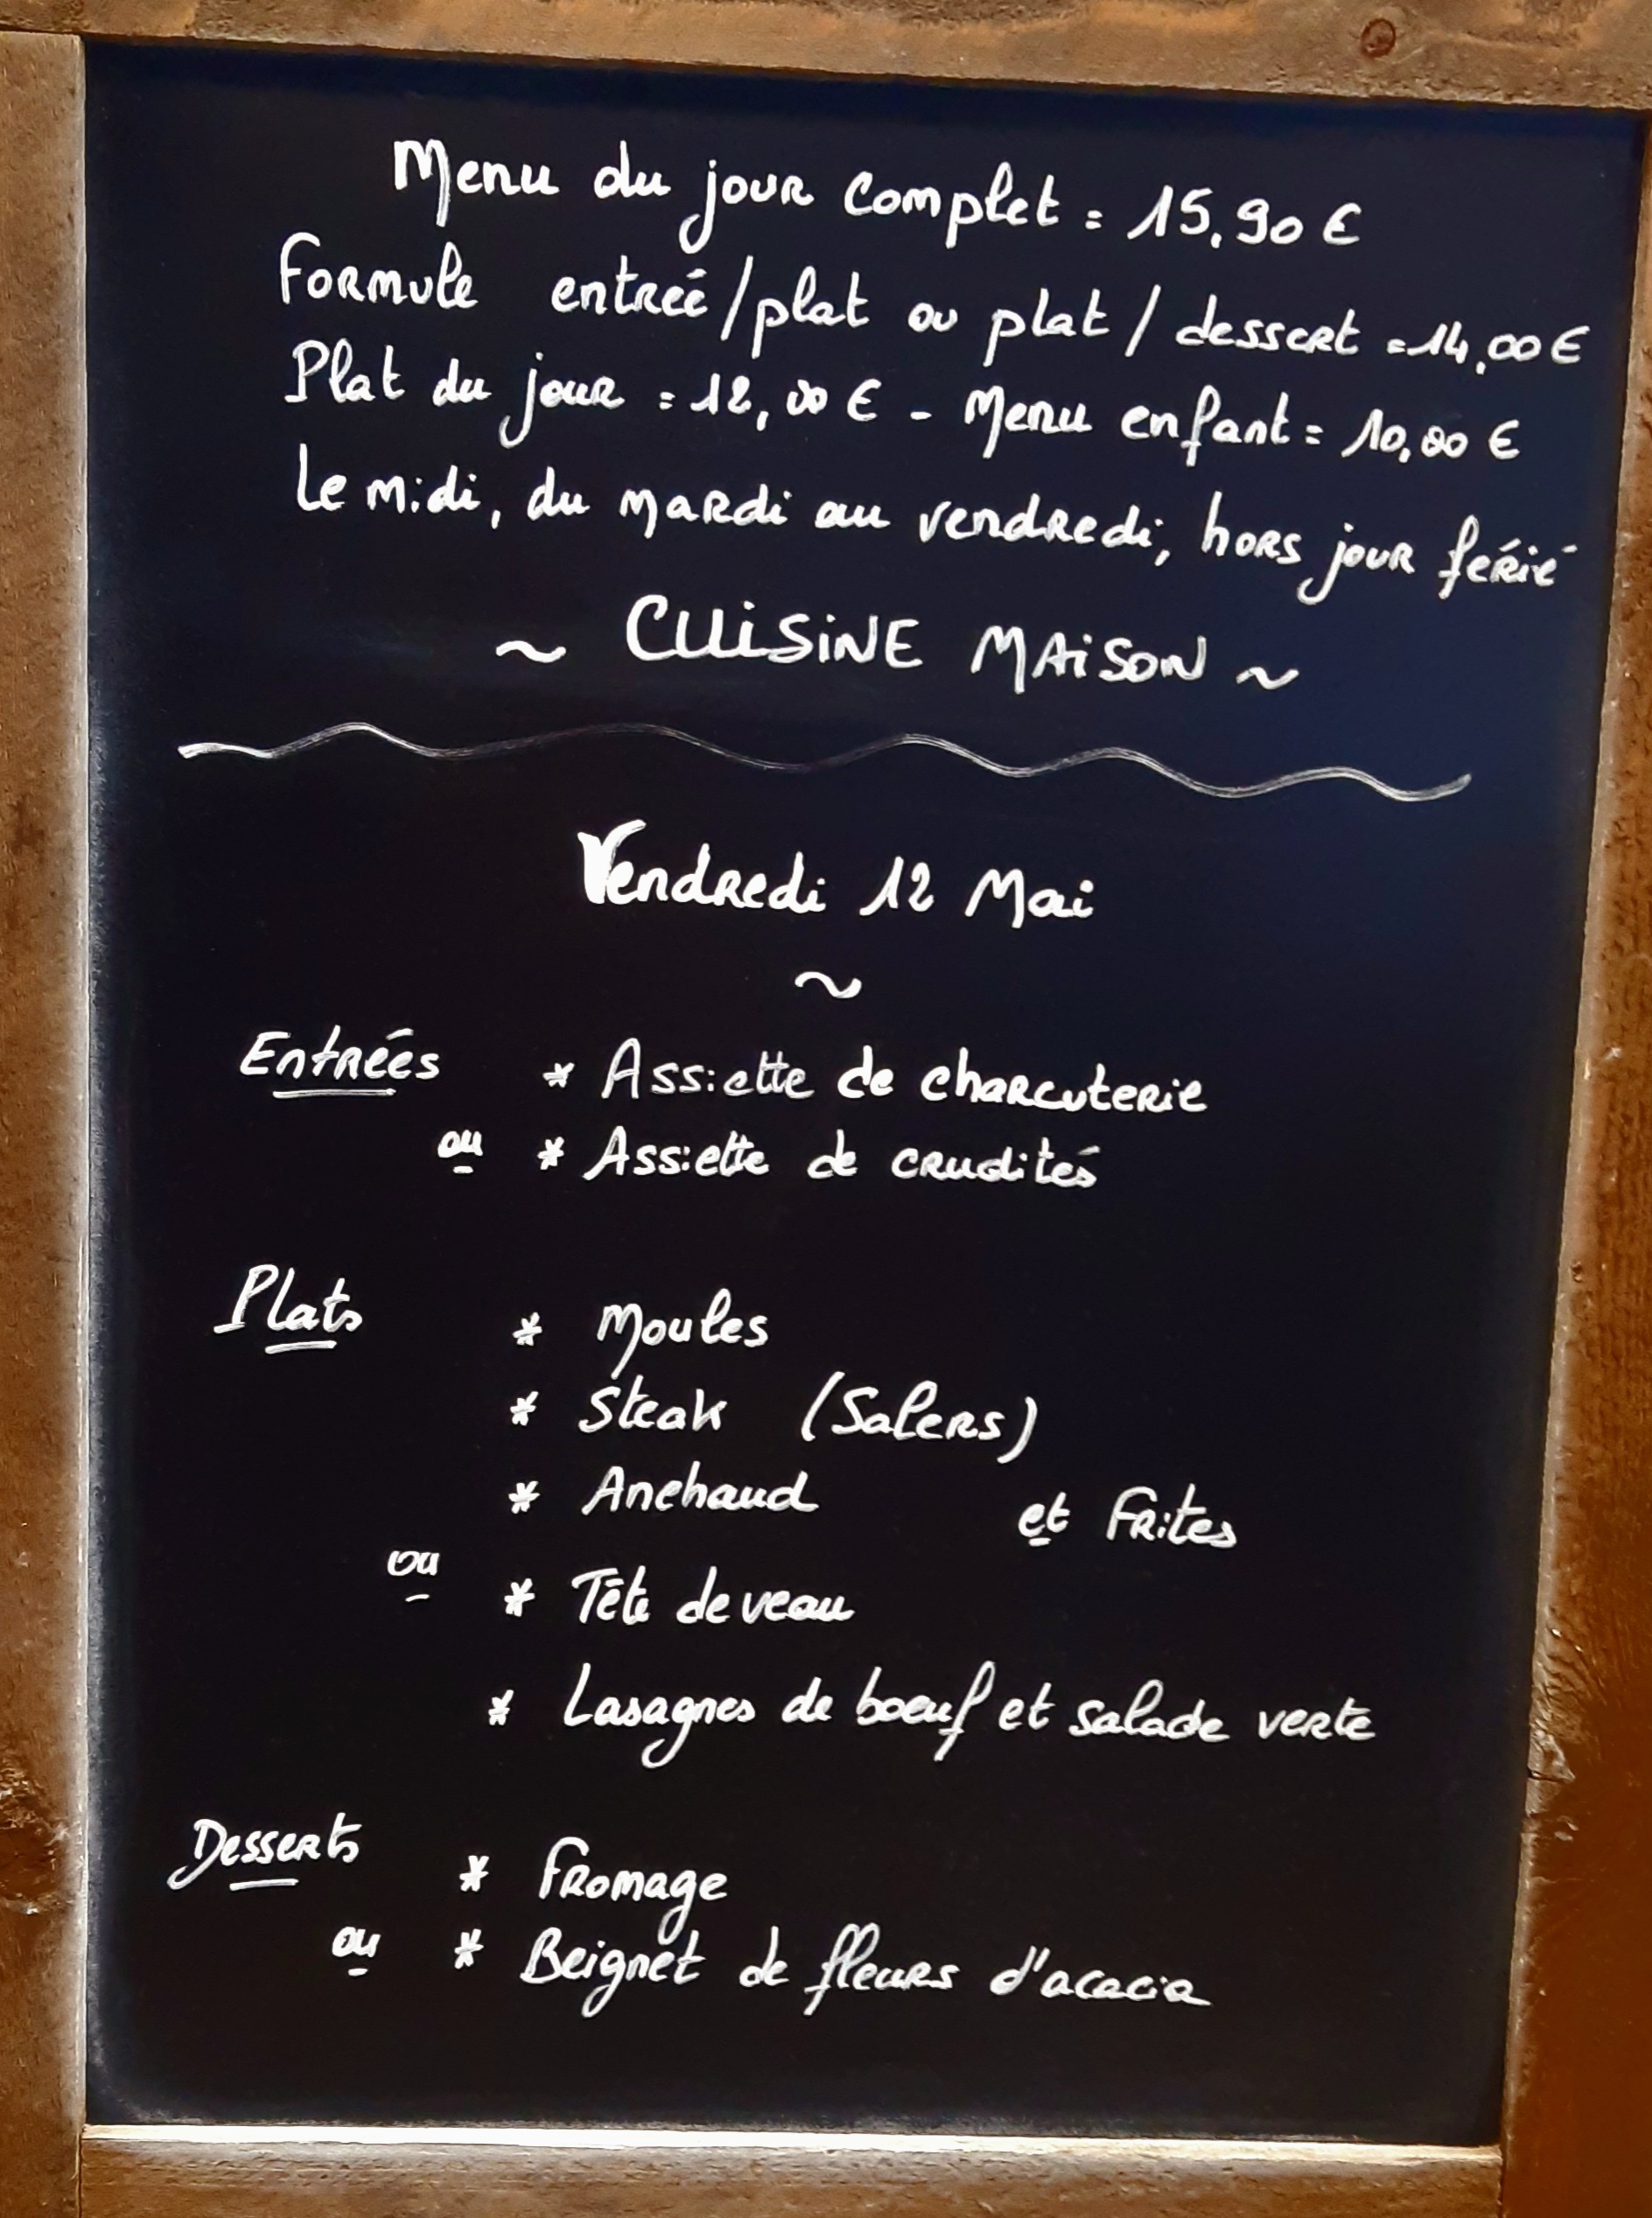 Menu du jour complet = 15,90 €
Formule entrée/plat ou plat/dessert = 14,00 €
Plat du jour = 12,00 € - Menu enfant = 10,00 €
Le midi, du mardi au vendredi, hors jour férié
~ CUISINE MAISON ~
Vendredi 12 Mai
~
Entrées * Assiette de charcuterie
ou * Assiette de crudités
Plats * Moules
* Steak (Salers)
* Anchaud et Frites
ou
* Tête de veau
* Lasagnes de boeuf et salade verte
Desserts * Fromage
ou * Beignet de fleurs d'acacia